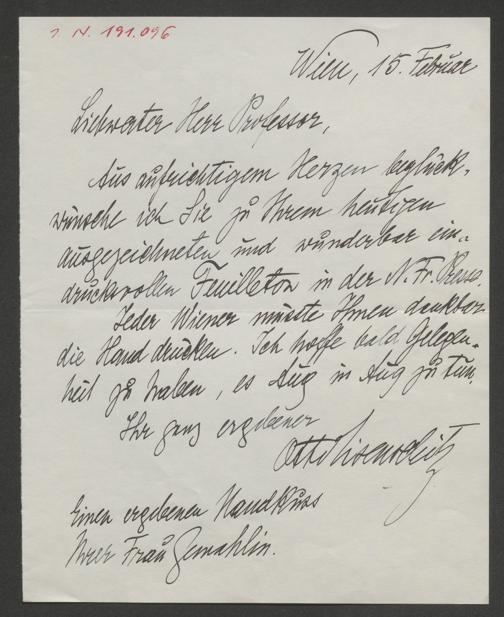 J. N. 191.096
Wien, 15. Februar
Liebwerter Herr Professor,
Aus aufrichtigem Herzen beglück-
wünsche ich Sie zu Ihrem heutigen
ausgezeichneten und wunderbar ein-
drucksvollen Feuilleton in der N. Fr. Presse.
Jeder Wiener müsste Ihnen dankbar
die Hand drücken. Ich hoffe bald Gelegen-
heit zu haben, es Aug in Aug zu tun.
Ihr ganz ergebener
Otto Eisenschitz
Einen ergebenen Handkuss
Ihrer Frau Gemahlin.